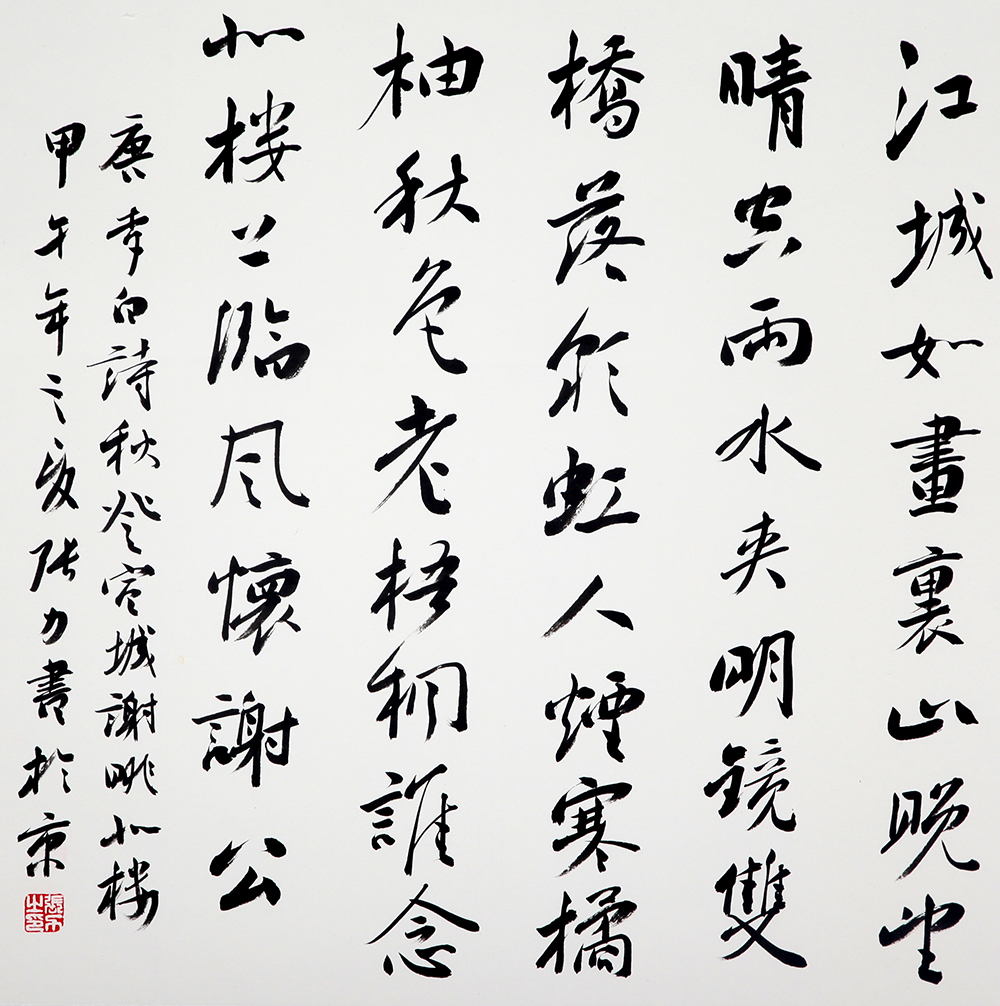 江城如畫裏山晚望
晴空兩水夹明镜雙
橋落彩虹人煙寒橘
柚秋色老梧桐誰念
北楼上臨风懷謝公
唐李白詩秋登宣城謝眺北楼
甲午年之夏张力書於京